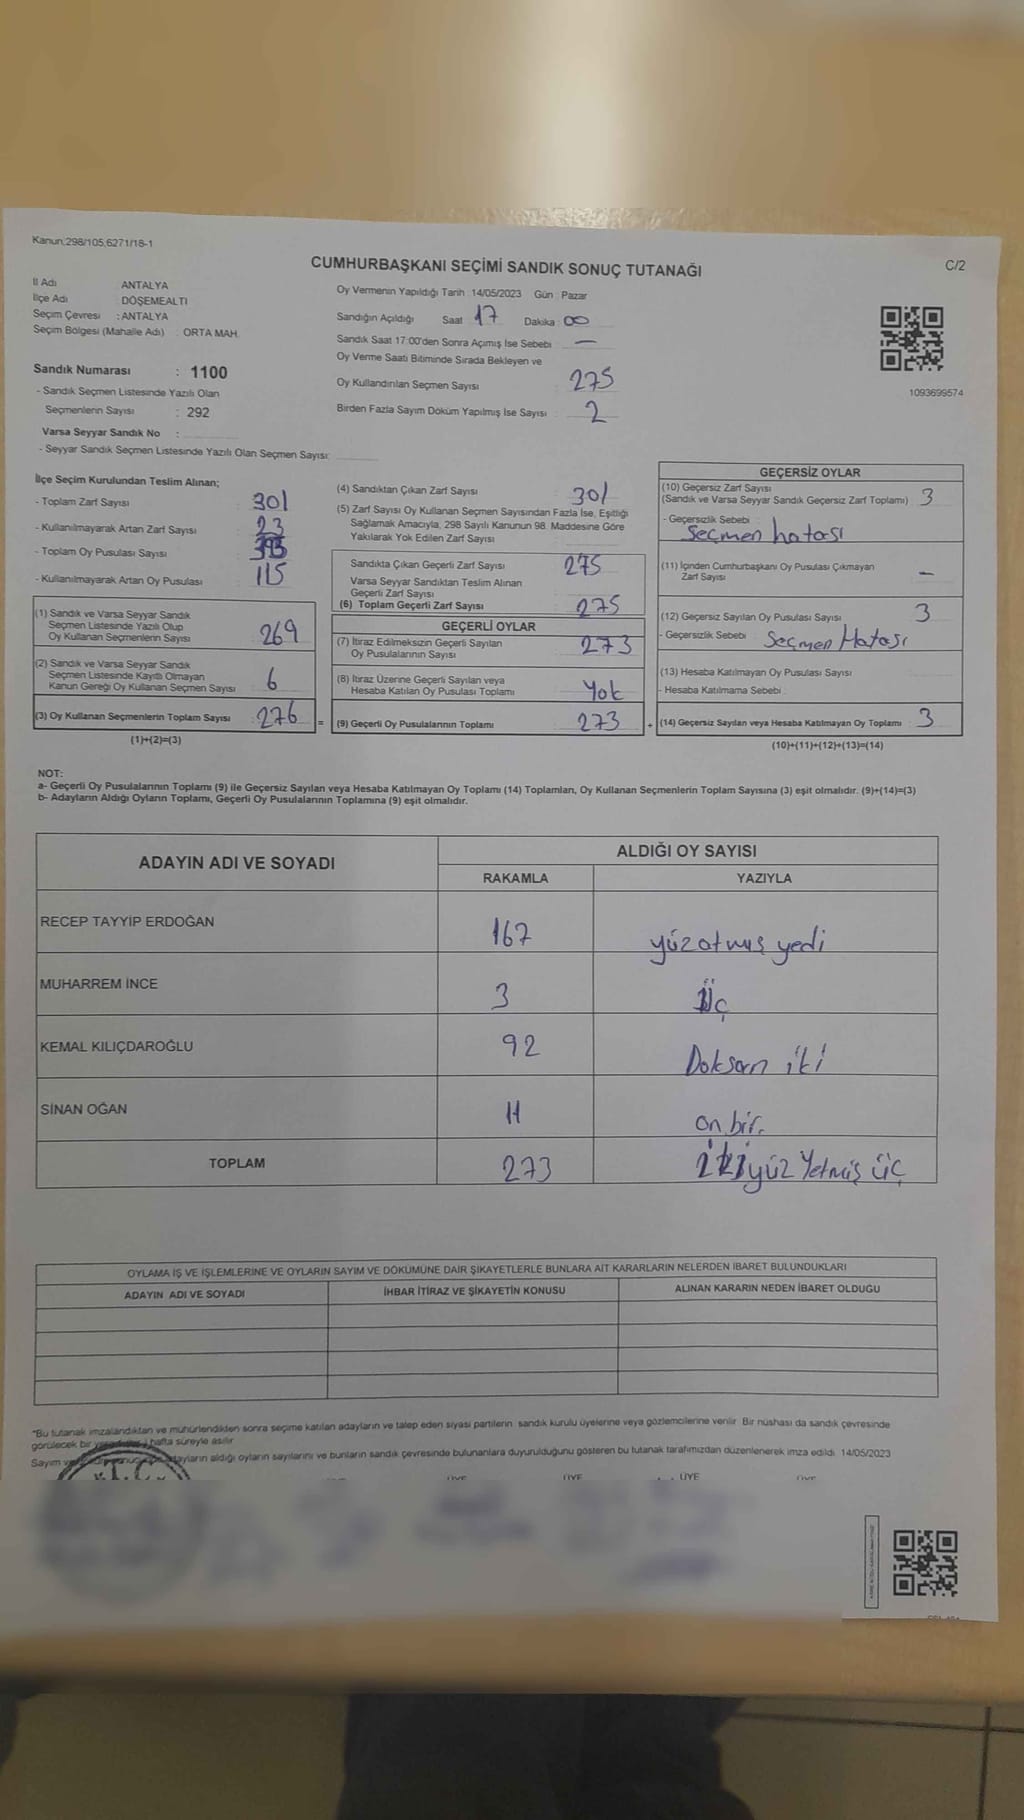 Kanun;298/105,6271/18-1
C/2
CUMHURBAŞKANI SEÇİMİ SANDIK SONUÇ TUTANAĞI
İl Adı : ANTALYA
İlçe Adı : DÖŞEMEALTI
Seçim Çevresi : ANTALYA
Seçim Bölgesi (Mahalle Adı) : ORTA MAH.
Sandık Numarası : 1100
- Sandık Seçmen Listesinde Yazılı Olan
Seçmenlerin Sayısı : 292
Varsa Seyyar Sandık No :
- Seyyar Sandık Seçmen Listesinde Yazılı Olan Seçmen Sayısı:
Oy Vermenin Yapıldığı Tarih :14/05/2023 Gün : Pazar
Sandığın Açıldığı Saat 17 Dakika : 00
Sandık Saat 17:00'den Sonra Açımış İse Sebebi : —
Oy Verme Saati Bitiminde Sırada Bekleyen ve
Oy Kullandırılan Seçmen Sayısı : 275
Birden Fazla Sayım Döküm Yapılmış İse Sayısı : 2
1093699574
İlçe Seçim Kurulundan Teslim Alınan;
- Toplam Zarf Sayısı : 301
- Kullanılmayarak Artan Zarf Sayısı : 23
- Toplam Oy Pusulası Sayısı
- Kullanılmayarak Artan Oy Pusulası : 115
(1) Sandık ve Varsa Seyyar Sandık
Seçmen Listesinde Yazılı Olup
Oy Kullanan Seçmenlerin Sayısı : 269
(2) Sandık ve Varsa Seyyar Sandık
Seçmen Listesinde Kayıtlı Olmayan
Kanun Gereği Oy Kullanan Seçmen Sayısı : 6
(3) Oy Kullanan Seçmenlerin Toplam Sayısı : 276 =
(1)+(2)=(3)
(4) Sandıktan Çıkan Zarf Sayısı : 301
(5) Zarf Sayısı Oy Kullanan Seçmen Sayısından Fazla İse, Eşitliği
Sağlamak Amacıyla, 298 Sayılı Kanunun 98. Maddesine Göre
Yakılarak Yok Edilen Zarf Sayısı :
Sandıkta Çıkan Geçerli Zarf Sayısı : 275
Varsa Seyyar Sandıktan Teslim Alınan
Geçerli Zarf Sayısı :
(6) Toplam Geçerli Zarf Sayısı : 275
GEÇERLİ OYLAR
(7) İtiraz Edilmeksizin Geçerli Sayılan
Oy Pusulalarının Sayısı : 273
(8) İtiraz Üzerine Geçerli Sayılan veya
Hesaba Katılan Oy Pusulası Toplamı : Yok
(9) Geçerli Oy Pusulalarının Toplamı : 273 +
GEÇERSİZ OYLAR
(10) Geçersiz Zarf Sayısı
(Sandık ve Varsa Seyyar Sandık Geçersiz Zarf Toplamı) : 3
- Geçersizlik Sebebi :
seçmen hatası
(11) İçinden Cumhurbaşkanı Oy Pusulası Çıkmayan
Zarf Sayısı : —
(12) Geçersiz Sayılan Oy Pusulası Sayısı : 3
- Geçersizlik Sebebi : Seçmen Hatası
(13) Hesaba Katılmayan Oy Pusulası Sayısı :
- Hesaba Katılmama Sebebi :
(14) Geçersiz Sayılan veya Hesaba Katılmayan Oy Toplamı : 3
(10)+(11)+(12)+(13)=(14)
NOT:
a- Geçerli Oy Pusulalarının Toplamı (9) ile Geçersiz Sayılan veya Hesaba Katılmayan Oy Toplamı (14) Toplamları, Oy Kullanan Seçmenlerin Toplam Sayısına (3) eşit olmalıdır. (9)+(14)=(3)
b- Adayların Aldığı Oyların Toplamı, Geçerli Oy Pusulalarının Toplamına (9) eşit olmalıdır.
ADAYIN ADI VE SOYADI
ALDIĞI OY SAYISI
RAKAMLA YAZIYLA
RECEP TAYYİP ERDOĞAN 167 yüzatmış yedi
MUHARREM İNCE 3 üç
KEMAL KILIÇDAROĞLU 92 Doksan iki
SİNAN OĞAN 11 on bir.
TOPLAM 273 ikiyüz Yetmiş üç
OYLAMA İŞ VE İŞLEMLERİNE VE OYLARIN SAYIM VE DÖKÜMÜNE DAİR ŞİKAYETLERLE BUNLARA AİT KARARLARIN NELERDEN İBARET BULUNDUKLARI
ADAYIN ADI VE SOYADI İHBAR İTİRAZ VE ŞİKAYETİN KONUSU ALINAN KARARIN NEDEN İBARET OLDUĞU
*Bu tutanak imzalandıktan ve mühürlendikten sonra seçime katılan adayların ve talep eden siyasi partilerin sandık kurulu üyelerine veya gözlemcilerine verilir. Bir nüshası da sandık çevresinde
görülecek bir hafta süreyle asılır.
Sayım adayların aldığı oyların sayılarını ve bunların sandık çevresinde bulunanlara duyurulduğunu gösteren bu tutanak tarafımızdan düzenlenerek imza edildi. 14/05/2023
T.C. ÜYE ÜYE ÜYE ÜYE